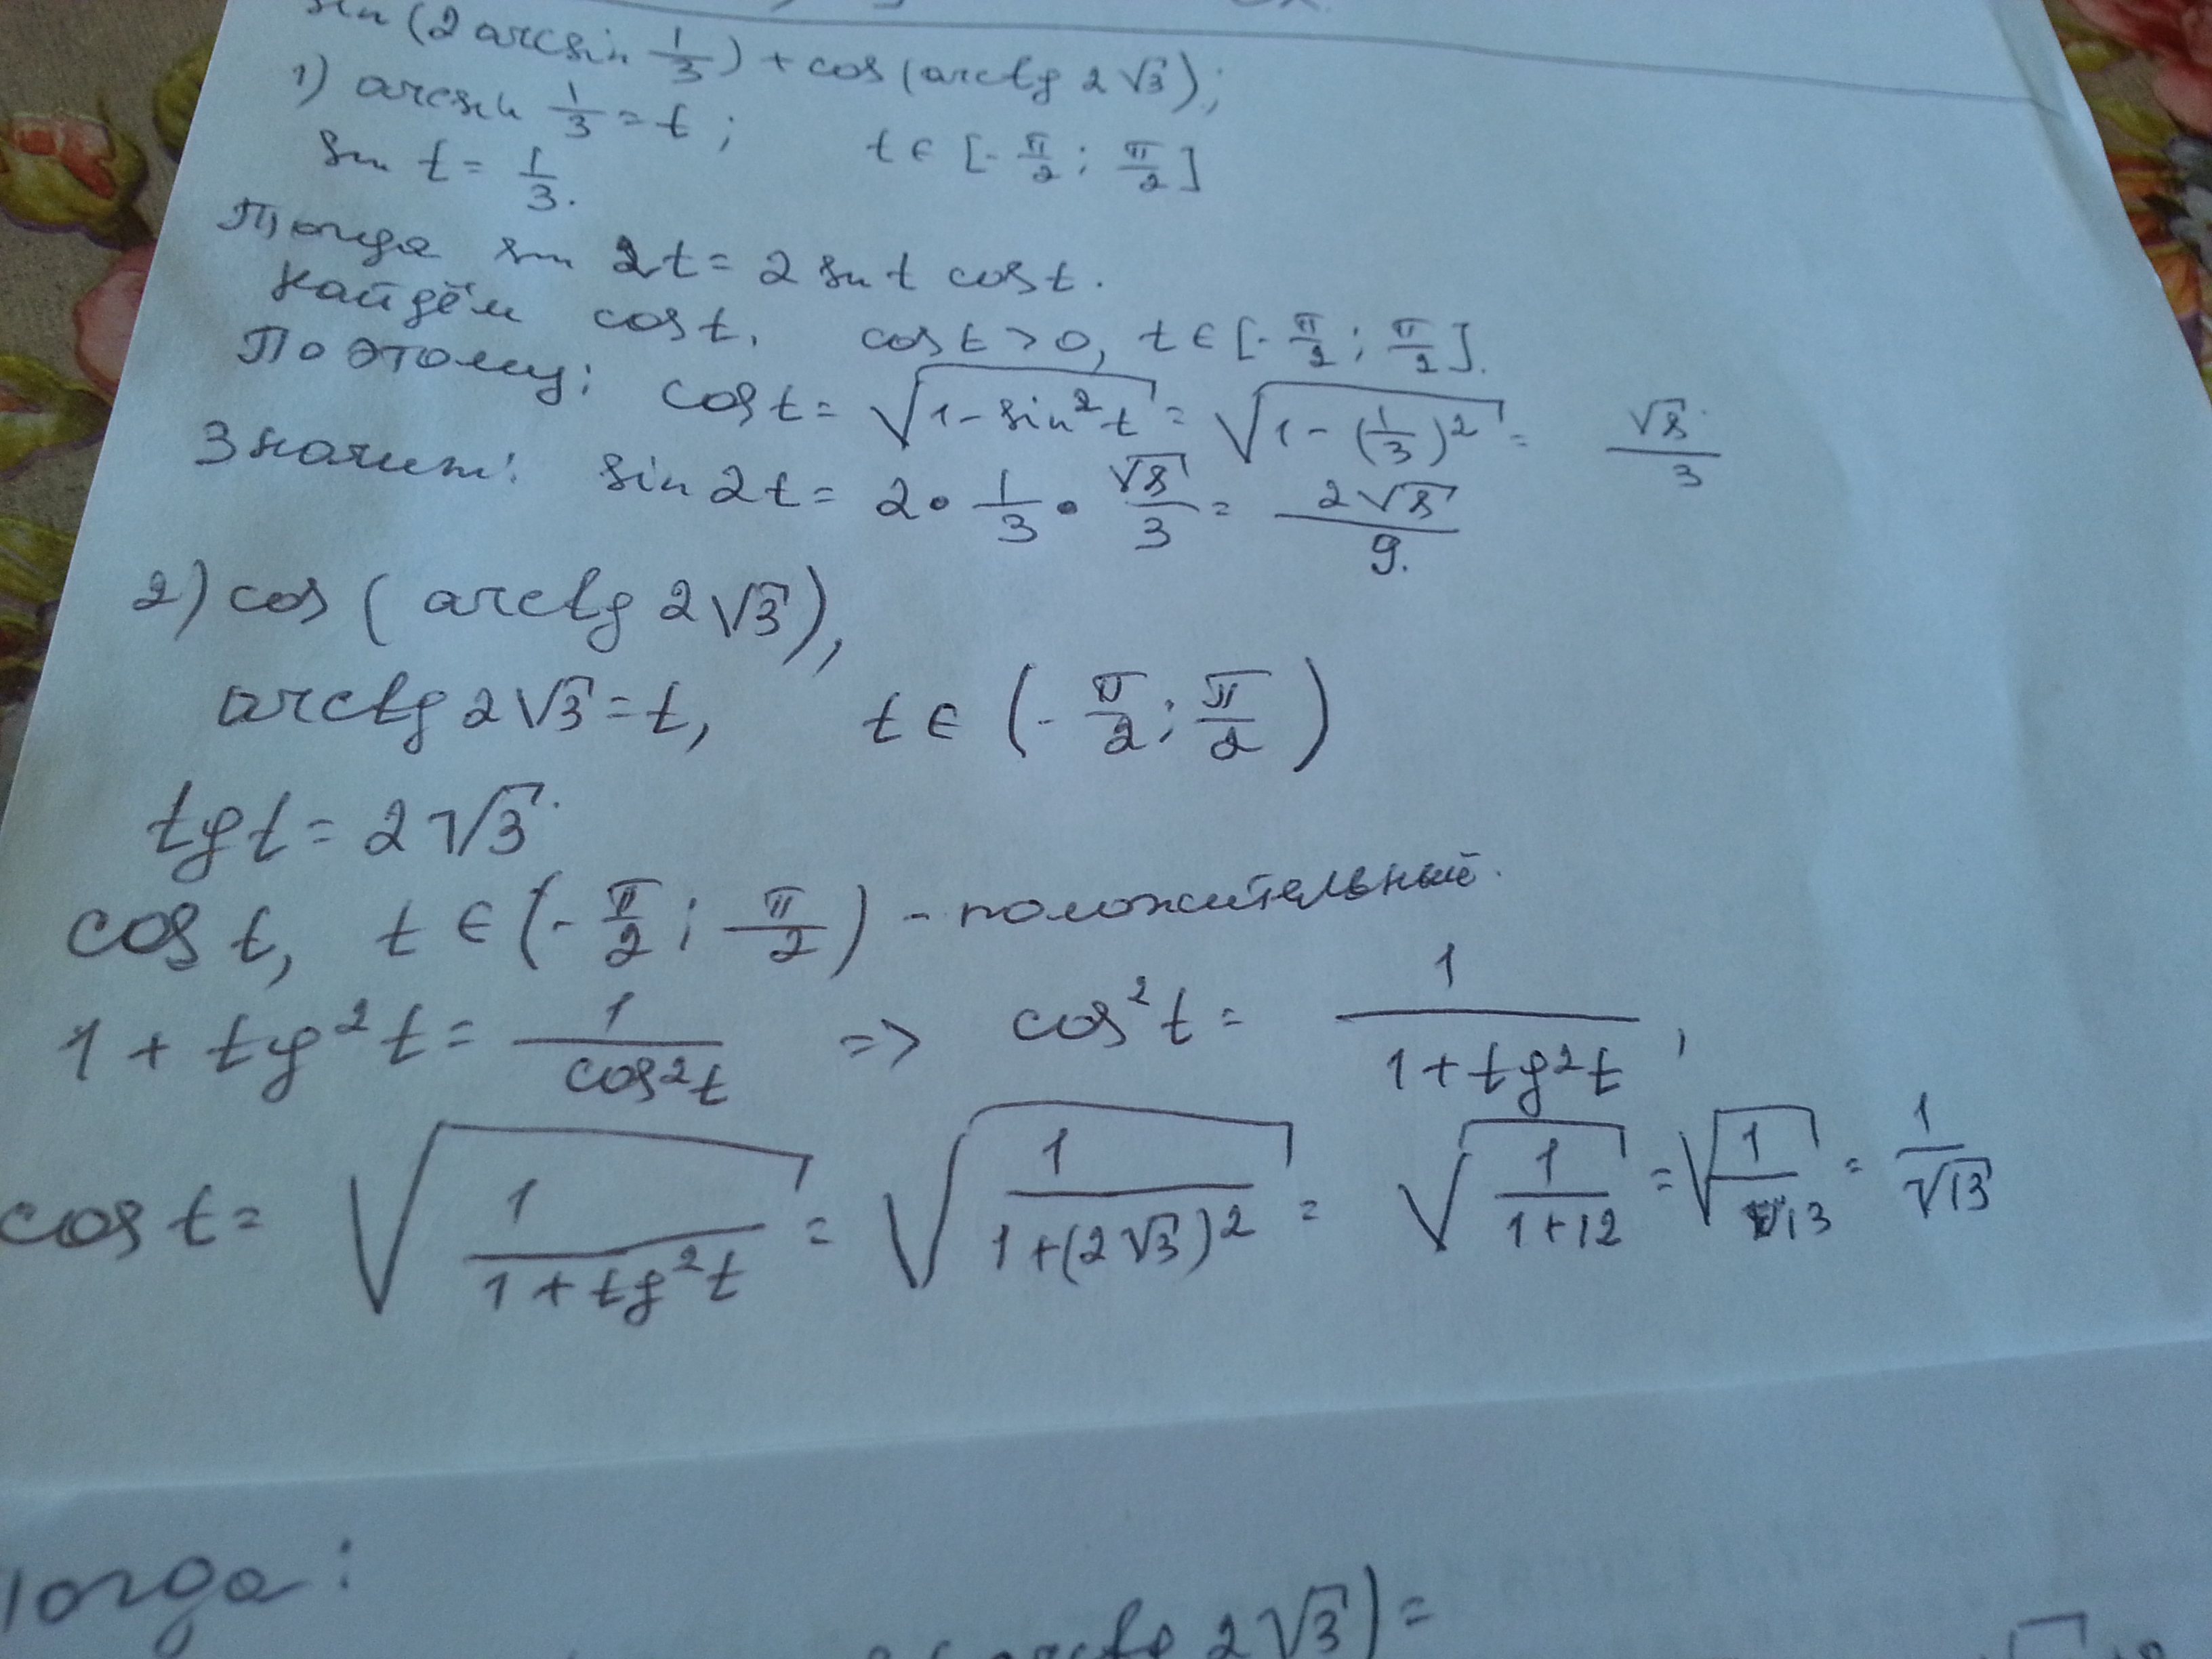 sin (2 arcsin 1/3) + cos (arctg 2√3);
1) arcsin 1/3 = t; t ∈ [-π/2; π/2]
sin t = 1/3.
Тогда sin 2t = 2 sin t cos t.
Найдём cos t. cos t > 0, t ∈ [-π/2; π/2].
Поэтому: cos t = √(1 - sin²t) = √(1 - (1/3)²) = √8/3
Значит: sin 2t = 2 • 1/3 • √8/3 = 2√8/9.
2) cos (arctg 2√3),
arctg 2√3 = t, t ∈ (-π/2; π/2)
tg t = 2√3.
cos t, t ∈ (-π/2; π/2) - положительный.
1 + tg²t = 1/cos²t => cos²t = 1/(1 + tg²t),
cos t = √(1/(1 + tg²t)) = √(1/(1 + (2√3)²)) = √(1/(1+12)) = √(1/13) = 1/√13
Тогда:
2√3) =